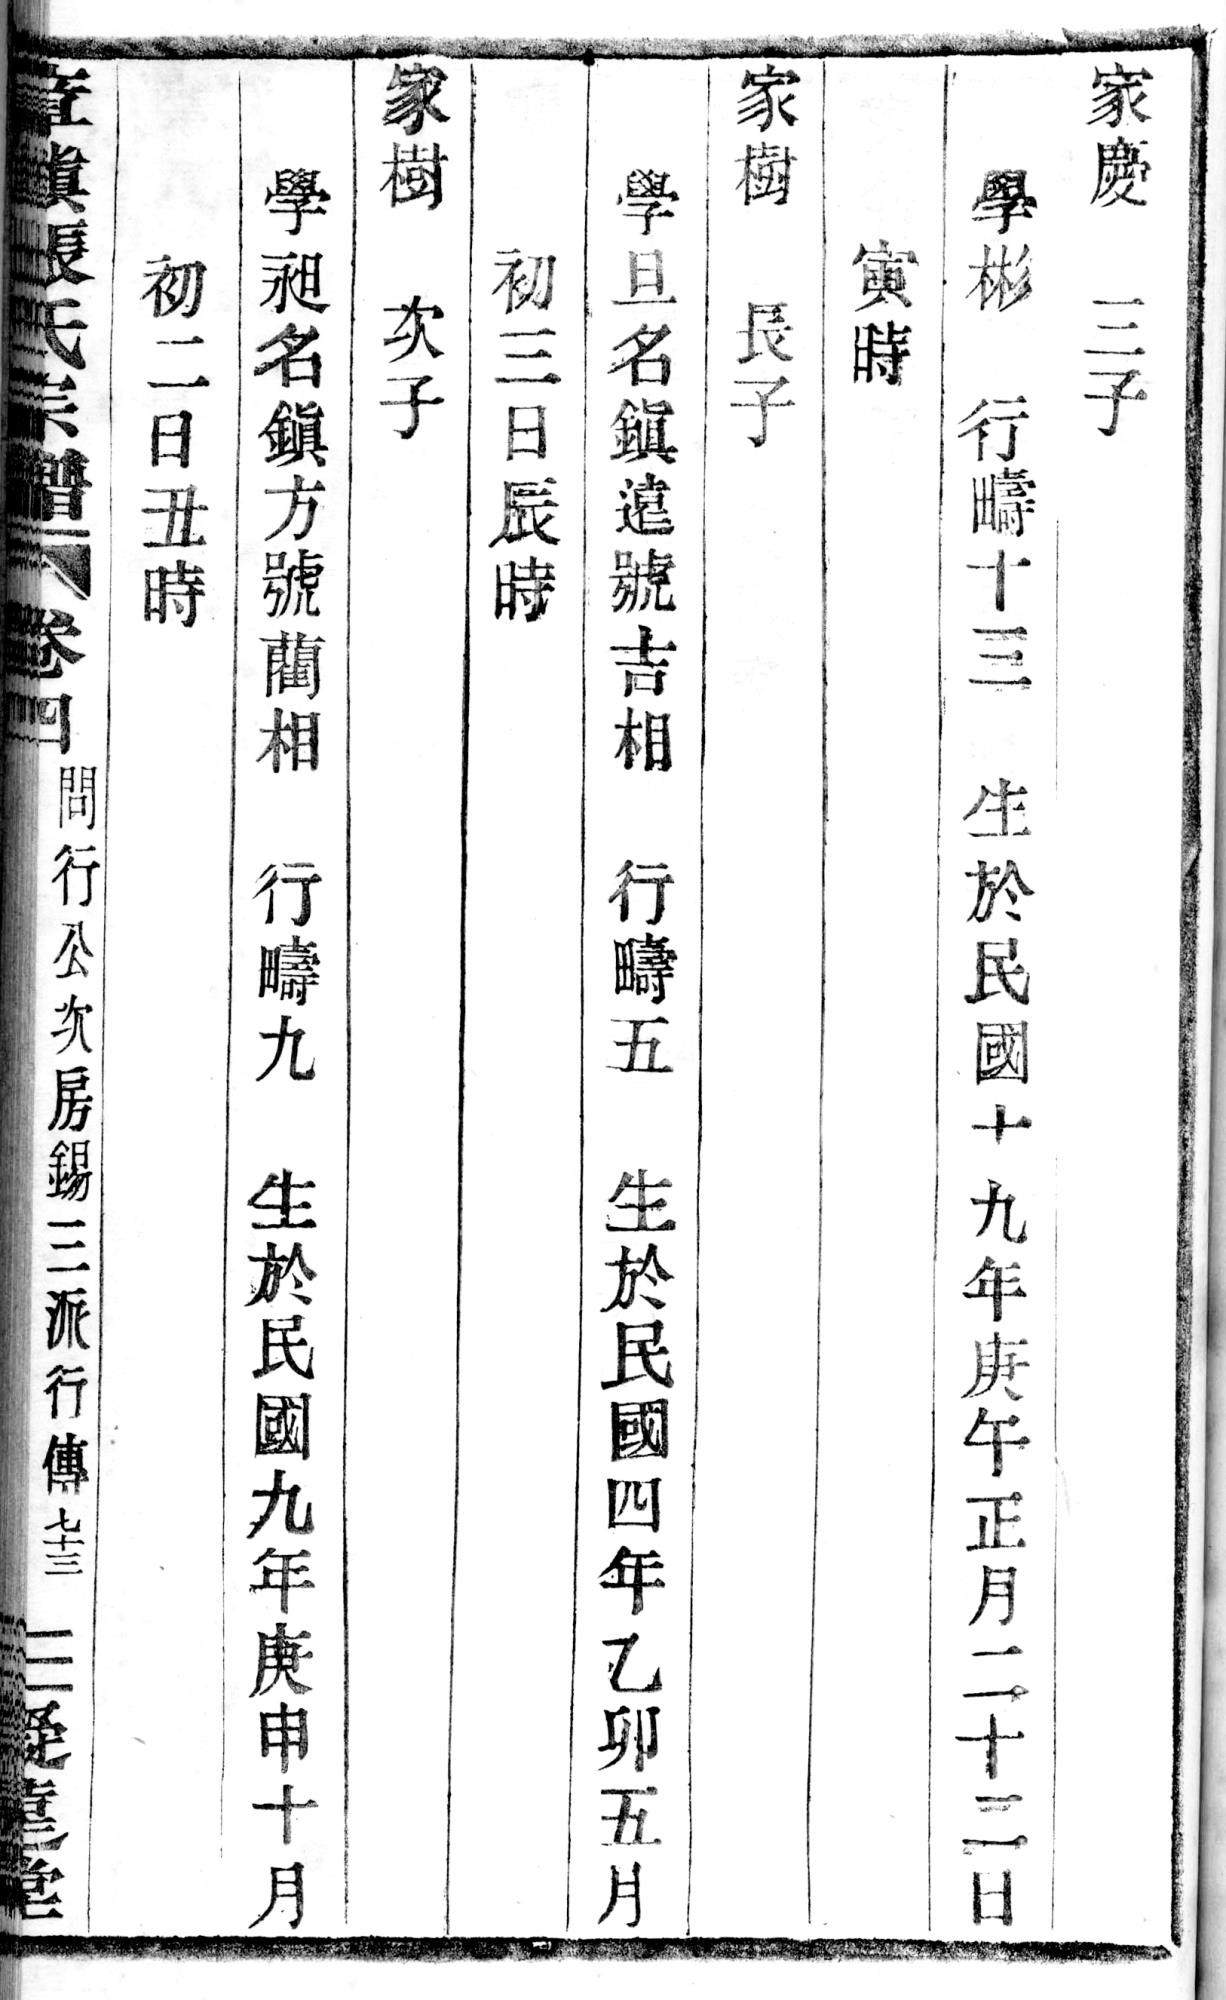 家慶 三子
學彬 行疇十三 生於民國十九年庚午正月二十三日
寅時
家樹 長子
學旦名鎭遠號吉相 行疇五 生於民國四年乙卯五月
初三日辰時
家樹 次子
學昶名鎭方號藺相 行疇九 生於民國九年庚申十月
初二日丑時
張氏宗譜 卷四 問行公次房錫三派行傳 七十三 堂